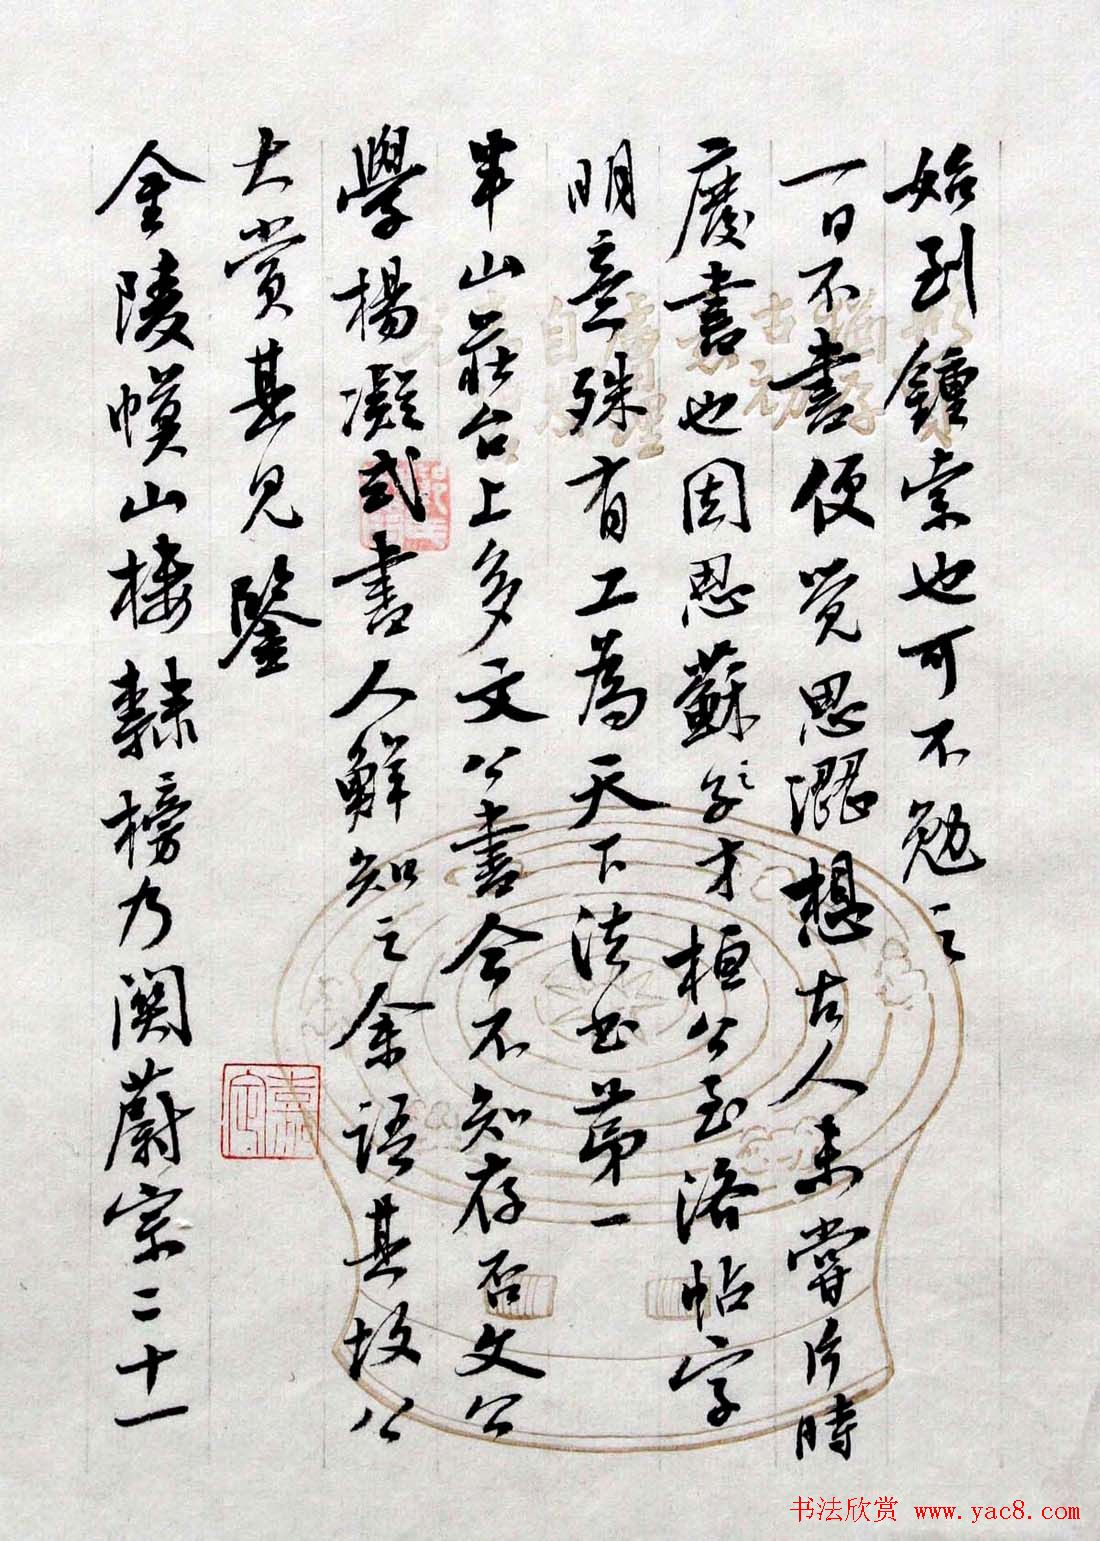 始到鍾索也可不勉之
一日不書便覺思澀想古人未嘗片時
廢書也因思蘇之才桓公至洛帖字
明意殊有工為天下法书第一
半山莊台上多文公書今不知存否文公
學楊凝式書人鮮知之余語其故公
大赏其見鑒
金陵幙山樓隸榜乃関蔚宗二十一
书法欣赏 www.yac8.com